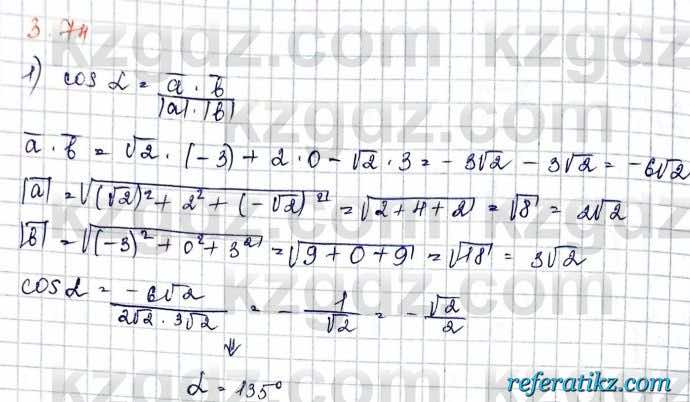 3.74
1) cos α = a̅ · b̅ / |a̅| · |b̅|
a̅ · b̅ = √2 · (-3) + 2 · 0 - √2 · 3 = -3√2 - 3√2 = -6√2
|a̅| = √((√2)² + 2² + (-√2)²) = √(2+4+2) = √8 = 2√2
|b̅| = √((-3)² + 0² + 3²) = √(9+0+9) = √18 = 3√2
cos α = -6√2 / 2√2 · 3√2 = - 1/√2 = - √2/2
⇓
α = 135°
kzgdz.com
referatikz.com